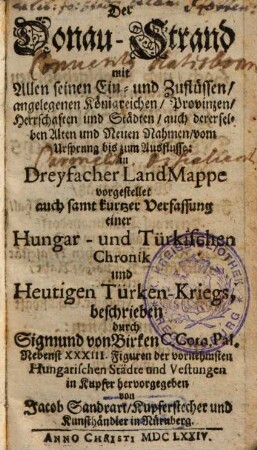 Der
Donau-Strand
mit
Allen seinen Ein- und Zuflüssen/
angelegenen Königreichen/ Provinzen/
Herrschaften und Städten/ auch dererselben
Alten und Neuen Nahmen/ vom
Ursprung bis zum Ausflusse:
in
Dreyfacher LandMappe
vorgestellet
auch samt kurtzer Verfassung
einer
Hungar- und Türkischen
Chronik
und
Heutigen Türken-Kriegs,
beschrieben
durch
Sigmund von Birken C. Com. Pal.
Nebenst XXXIII. Figuren der vornehmsten
Hungarischen Städte und Vestungen
in Kupfer hervorgegeben
von
Jacob Sandrart/ Kupferstecher und
Kunsthändler in Nürnberg.
ANNO CHRISTI MDCLXXIV.